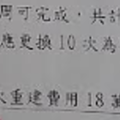 可完成,共計
應更換10次為
重建費用18